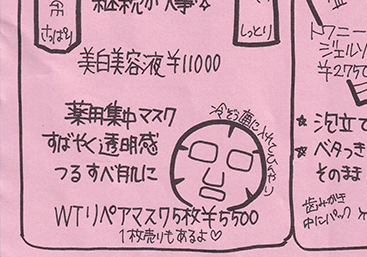 継続が大事☆
さっぱり
しっとり
美白美容液¥11000
薬用集中マスク
すばやく透明感
つるすべ肌に
冷ぞう庫に入れてひんやり
WTリペアマスク5枚¥5500
1枚売りもあるよ♡
トワニー
ジェルソ
¥2750
★泡立て
★ベタつき
そのまま
歯みがき
中にパック